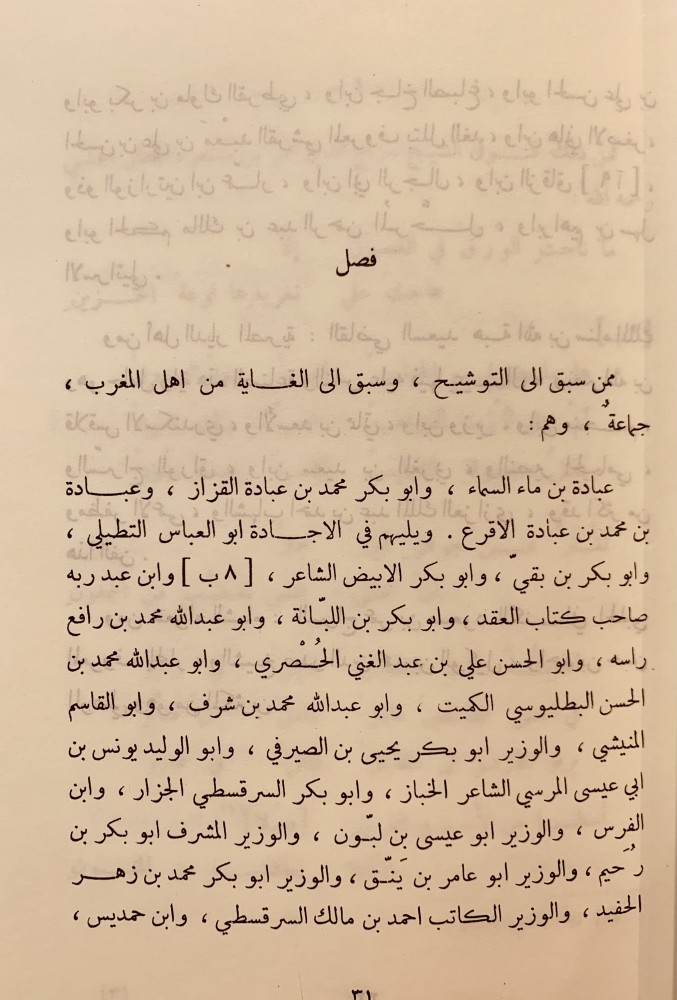 فصل
ممن سبق الى التوشيح ، وسبق الى الغاية من اهل المغرب ،
جماعةٌ ، وهم :
عبادة بن ماء السماء ، وابو بكر محمد بن عبادة القزاز ، وعبادة
بن محمد بن عبادة الاقرع . ويليهم في الاجادة ابو العباس التطيلي ،
وابو بكر بن بقيّ ، وابو بكر الابيض الشاعر ، [ ٨ ب ] وابن عبد ربه
صاحب كتاب العقد ، وابو بكر بن اللبّانة ، وابو عبدالله محمد بن رافع
راسه ، وابو الحسن علي بن عبد الغني الحُصْري ، وابو عبدالله محمد بن
الحسن البطليوسي الكميت ، وابو عبدالله محمد بن شرف ، وابو القاسم
المنيشي ، والوزير ابو بكر يحيى بن الصيرفي ، وابو الوليد يونس بن
ابي عيسى المرسي الشاعر الخباز ، وابو بكر السرقسطي الجزار ، وابن
الفرس ، والوزير ابو عيسى بن لبّون ، والوزير المشرف ابو بكر بن
رُحَيم ، والوزير ابو عامر بن يَنّق ، والوزير ابو بكر محمد بن زهر
الحفيد ، والوزير الكاتب احمد بن مالك السرقسطي ، وابن حمديس ،
٣١